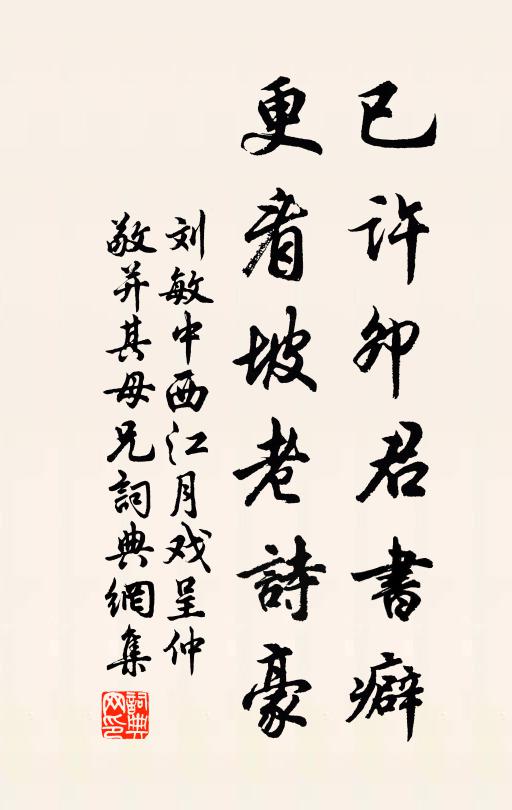 已许卯君書癖
更看坡老詩豪
刘敏中西江月戏呈仲
敬并其母兄詞典網集
詞典网印